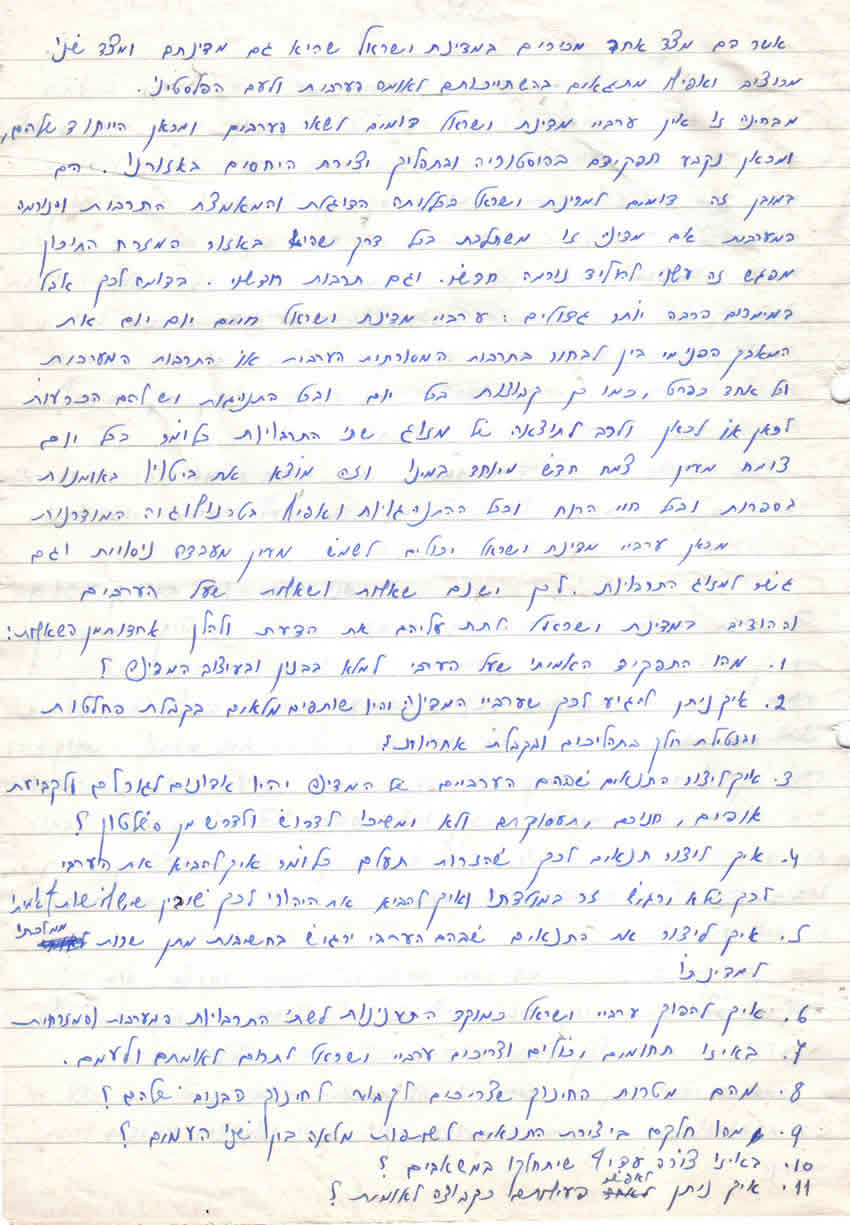 אשר הם מצד אחד מכירים במדינת ישראל שהיא גם מדינתם ומצד שני
מרוצים ואפילו מתגאים בהשתייכותם לאומה הערבית ולעם הפלסטיני.
מבחינה זו אין ערביי מדינת ישראל דומים לשאר הערבים ומכאן הייחוד שלהם,
ומכאן נקבע תפקידם בהסטוריה ובתהליך יצירת היחסים באזורנו. הם
במובן זה דומים למדינת ישראל בכללותה הדוגלת והמאמצת התרבות והנורמה
המערבית אם מדינה זו משתלבת בכל דרך שהיא באזור המזרח התיכון
מפגש זה עשוי להוליד נורמה חדשה. וגם תרבות חדשה. בדומה לכך אבל
במימדים הרבה יותר גדולים: ערביי מדינת ישראל חיים יום יום את
המאבק הפנימי בין לבחור בתרבות המסורתית הערבית או התרבות המערבית
וכל אחד כפרט, כמו כן קבוצות בכל יום ובכל התנהגות יש להם הכרעות
לכאן או לכאן ולרב לתוצאה של מזוג שתי התרבויות כלומר בכל יום
צומח מעין צמח חדש מיוחד במינו וזה מוצא את ביטויו באומנות
בספרות ובכל חיי הרוח ובכל ההתנהגויות ואפילו בטכנולוגיה המודרנית
מכאן ערביי מדינת ישראל יכולים לשמש מעין מעבדה ניסויית וגם
גשר למזוג התרבויות. לכן ישנם שאלות ושאלות שעל הערבים
והיהודים במדינת ישראל לתת עליהם את הדעת ולהלן אחדות מן השאלות:
1. מהו התפקיד האמיתי שעל הערבי למלא בבנין ובעיצוב המדינה?
2. איך ניתן להגיע לכך שערביי המדינה יהיו שותפים מלאים בקבלת החלטות
ובנטילת חלק בתהליכים ובקבלת אחריות?
3. איך ליצור התנאים שבהם הערביים של המדינה יהיו אדונים לגורלם ולקביעת
אופים, חינוכם, תעסוקתם ולא ימשיכו לדרוש ולדרוש מן השלטון?
4. איך ליצור תנאים לכך שהזרות תעלם כלומר איך להביא את הערבי
לכך שלא ירגיש זר במולדתו ואיך להביא את היהודי לכך שיבין שישות אמיתי
5. איך ליצור את התנאים שבהם הערבי ירגיש בחשיבות מתן שרות ממלכתי
למדינתו
6. איך להפוך ערביי ישראל כמוקד התענינות לשתי התרבויות המערבית והמזרחית
7. באיזו תחומים יכולים וצריכים ערביי ישראל לתרום לאומתם ולעמם.
8. מהם מטרות החינוך שצריכים לקבוע לחינוך הבנים שלהם?
9. מהו חלקם ביצירת התנאים לשותפות מלאה בין שני העמים?
10. באיזו צורה עדיף שיתחלקו במשאבים?
11. איך ניתן לאפשר פעילותם כקבוצה לאומית?